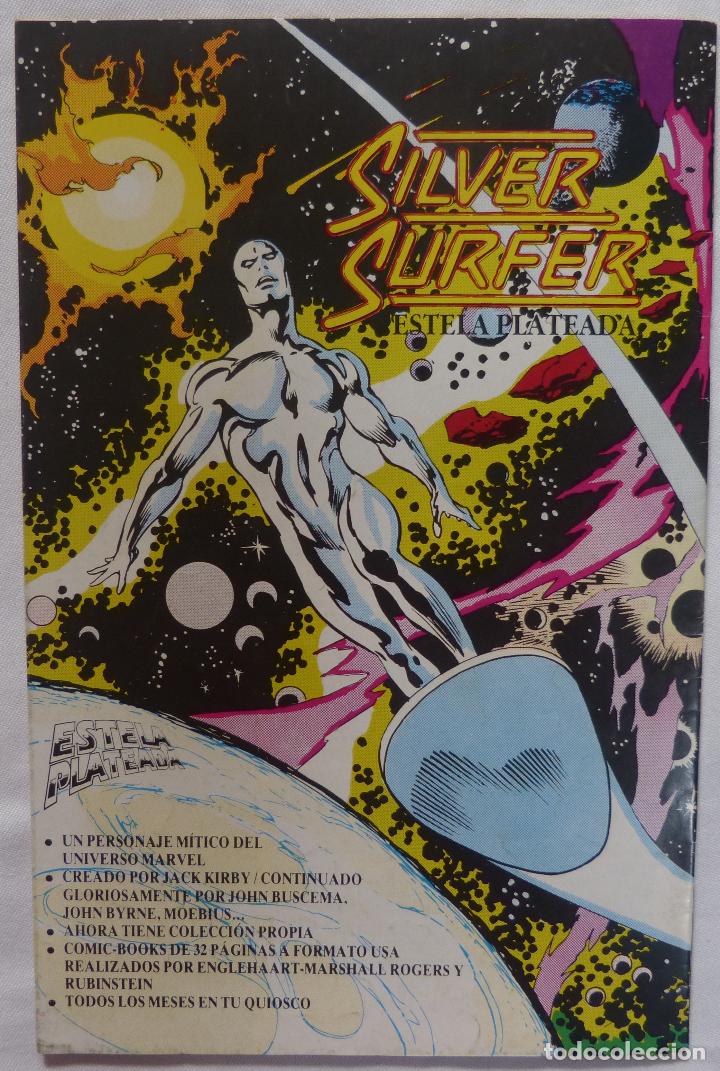 SILVER
SURFER
ESTELA PLATEADA
ESTELA
PLATEADA
• UN PERSONAJE MÍTICO DEL
UNIVERSO MARVEL
• CREADO POR JACK KIRBY / CONTINUADO
GLORIOSAMENTE POR JOHN BUSCEMA,
JOHN BYRNE, MOEBIUS...
• AHORA TIENE COLECCIÓN PROPIA
• COMIC-BOOKS DE 32 PÁGINAS A FORMATO USA
REALIZADOS POR ENGLEHAART-MARSHALL ROGERS Y
RUBINSTEIN
• TODOS LOS MESES EN TU QUIOSCO
todocoleccion.net